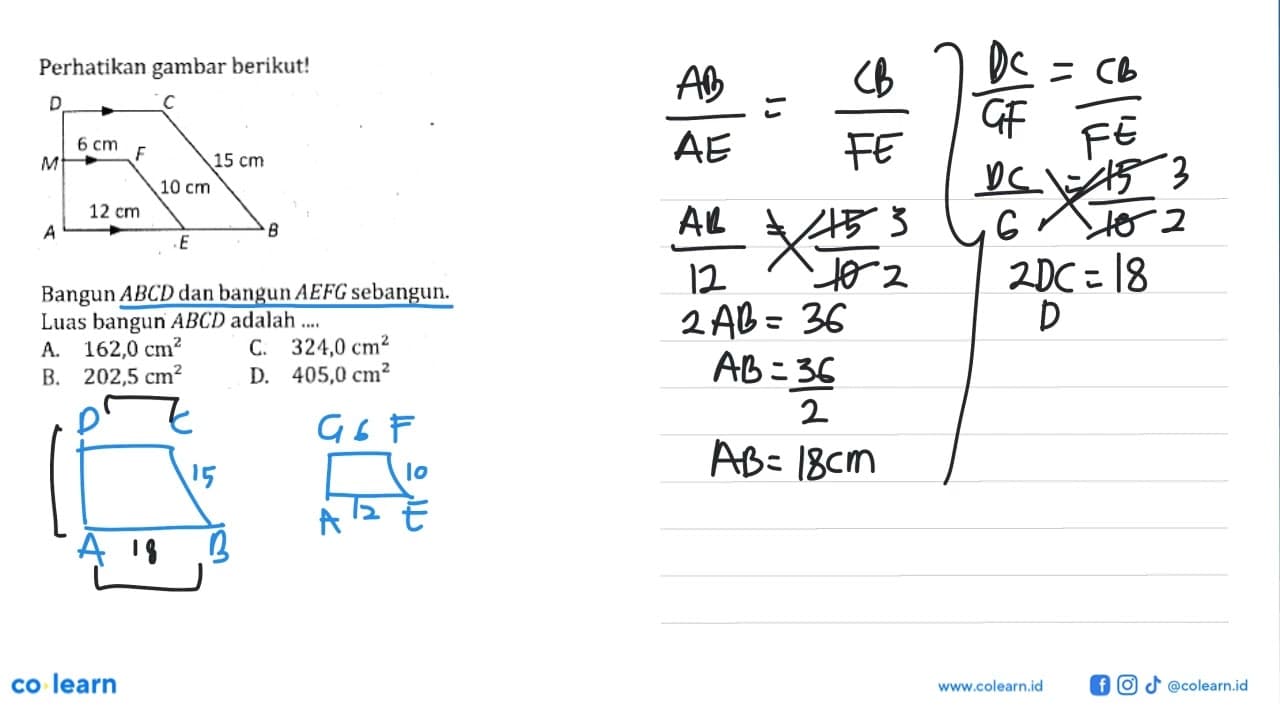 Perhatikan gambar berikut!
D C
6 cm
M F 15 cm
10 cm
12 cm
A E B
Bangun ABCD dan bangun AEFG sebangun.
Luas bangun ABCD adalah ....
A. 162,0 cm² C. 324,0 cm²
B. 202,5 cm² D. 405,0 cm²
D C
15
A 18 B
G 6 F
10
A 12 E
AB/AE = CB/FE
AB/12 = 15/10 3/2
2AB = 36
AB = 36/2
AB = 18cm
DC/GF = CB/FE
DC/6 = 15/10 3/2
2DC = 18
D
co learn
www.colearn.id
@colearn.id